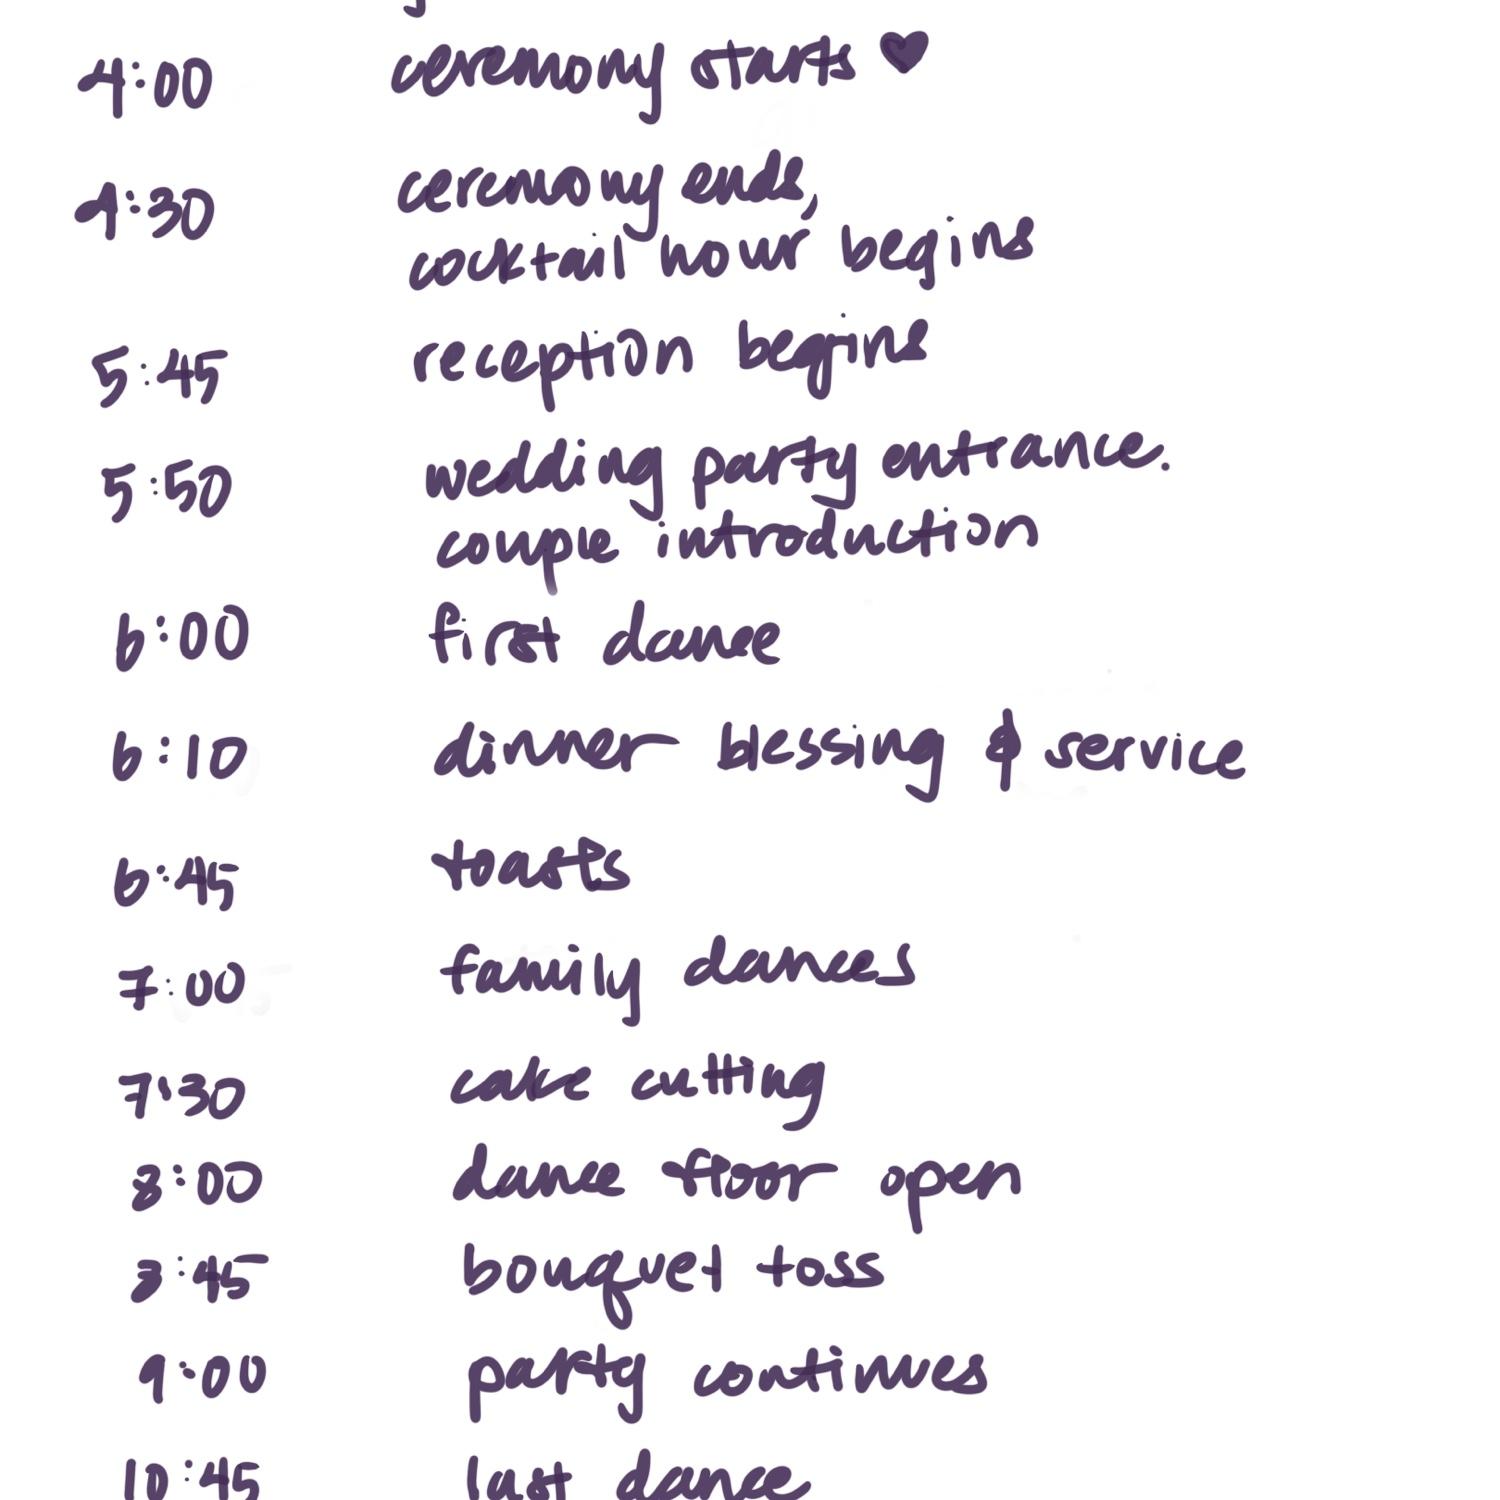 4:00 ceremony starts ♥
4:30 ceremony ends,
cocktail hour begins
5:45 reception begins
5:50 wedding party entrance.
couple introduction
6:00 first dance
6:10 dinner blessing & service
6:45 toasts
7:00 family dances
7:30 cake cutting
8:00 dance floor open
8:45 bouquet toss
9:00 party continues
10:45 last dance